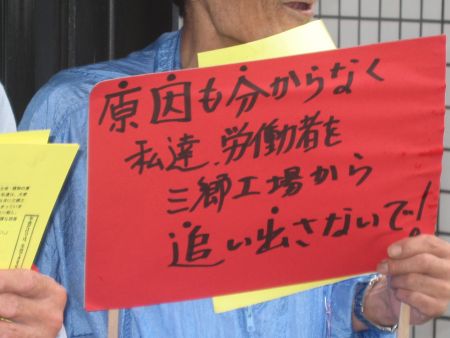 原因も分からなく
私達、労働者を
三郷工場から
追い出さないで!